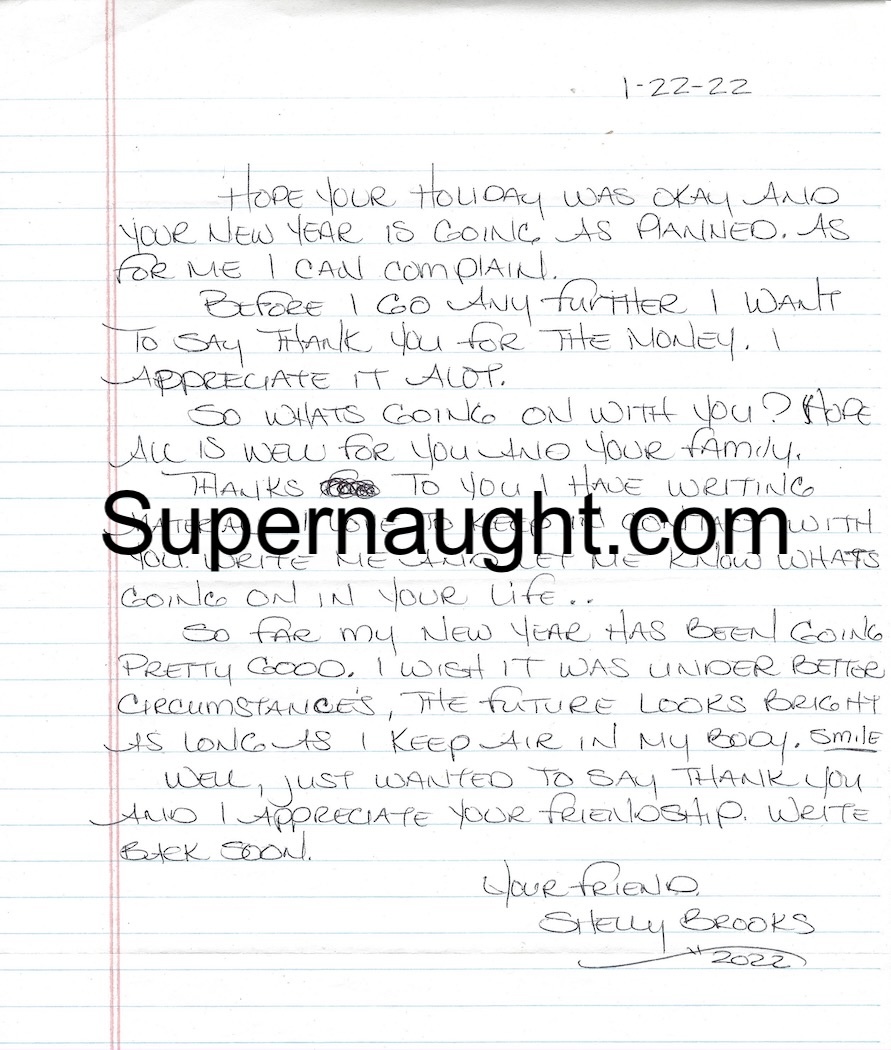 1-22-22
HOPE YOUR HOLIDAY WAS OKAY AND
YOUR NEW YEAR IS GOING AS PLANNED. AS
FOR ME I CAN COMPLAIN.
BEFORE I GO ANY FURTHER I WANT
TO SAY THANK YOU FOR THE MONEY. I
APPRECIATE IT ALOT.
SO WHATS GOING ON WITH YOU? HOPE
ALL IS WELL FOR YOU AND YOUR FAMILY.
THANKS TO YOU I HAVE WRITING
MATERIAL. I LOVE TO KEEP IN CONTACT WITH
Supernaught.com
YOU. WRITE ME AND LET ME KNOW WHATS
GOING ON IN YOUR LIFE..
SO FAR MY NEW YEAR HAS BEEN GOING
PRETTY GOOD. I WISH IT WAS UNDER BETTER
CIRCUMSTANCE'S, THE FUTURE LOOKS BRIGHT
AS LONG AS I KEEP AIR IN MY BODY. SMILE
WELL, JUST WANTED TO SAY THANK YOU
AND I APPRECIATE YOUR FRIENDSHIP. WRITE
BACK SOON.
YOUR FRIEND.
SHELLY BROOKS
2022